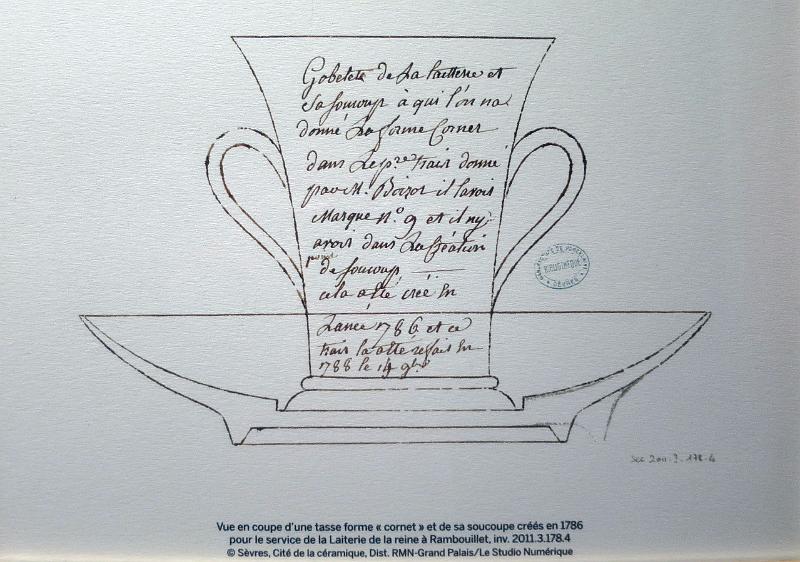 Gobelete de La laitterie et
Sa soucoup à qui l'on na
donné La forme Cornet
dans Le pre trait donné
par M. Boizot il lavoit
Marque N.º 9 et il ny
avoit dans La Création
point
de soucoup
cela a été creé En
Lanée 1786 et ce
trait la atté refait En
1788 le 14 9bre
BIBLIOTHÈQUE
Sec 2011.3.178.4
Vue en coupe d'une tasse forme « cornet » et de sa soucoupe créés en 1786
pour le service de la Laiterie de la reine à Rambouillet, inv. 2011.3.178.4
© Sèvres, Cité de la céramique, Dist. RMN-Grand Palais/Le Studio Numérique